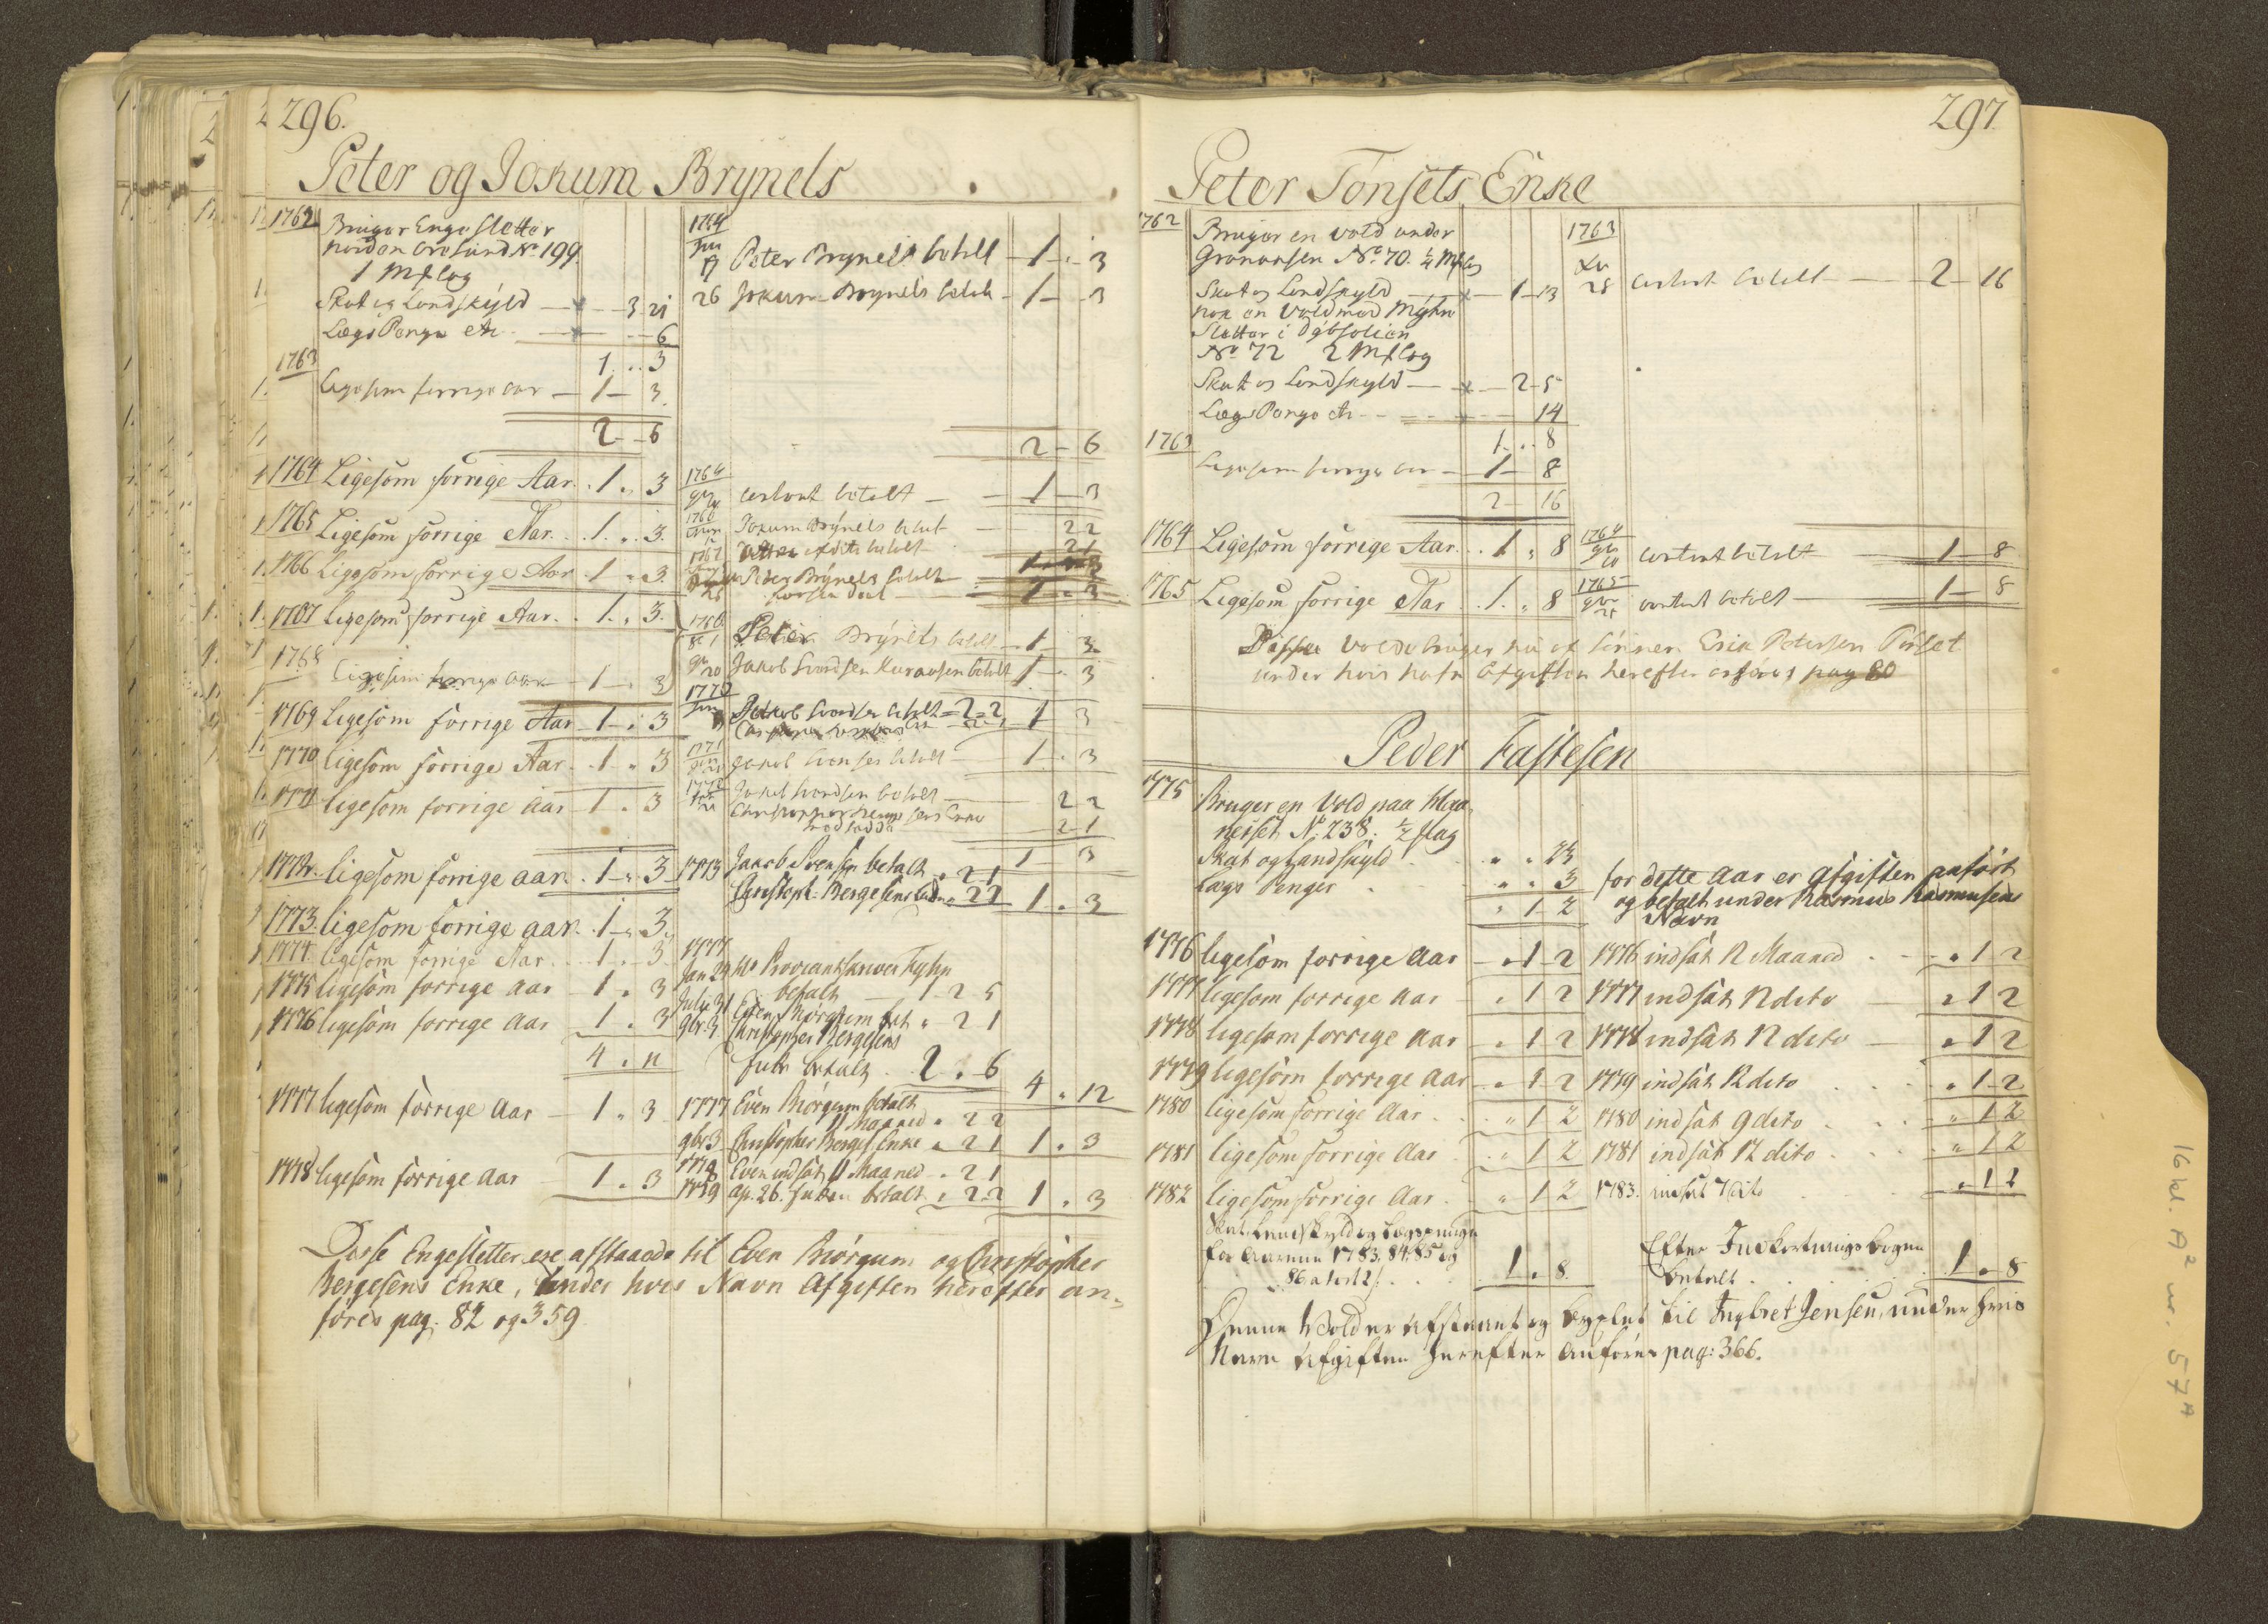 296.
Peter og Jokum Brynels
1762 Bruger Enge Sletter
norden Oresund No 199
1 Mslag
Skat og Landskyld 3 21
Lægs Penge etc 6
1 3
1763 Ligesom forrige aar 1 3
2 6
1764 Ligesom forrige Aar 1 3
1765 Ligesom forrige Aar 1 3
1766 Ligesom forrige Aar 1 3
1767 Ligesom forrige Aar 1 3
1768 Ligesom forrige aar 1 3
1769 Ligesom forrige Aar 1 3
1770 ligesom forrige Aar 1 3
1771 ligesom forrige aar 1 3
1772 ligesom forrige aar 1 3
1773 ligesom forrige aar 1 3
1774 ligesom forrige Aar 1 3
1775 ligesom forrige aar 1 3
1776 ligesom forrige Aar 1 3
4 12
1777 ligesom forrige Aar 1 3
1778 ligesom forrige Aar 1 3
1764
Peter Brynels betalt 1 3
26 Jokum Brynels betalt 1 3
2 6
1764 contant betalt 1 3
1766 Jokum Brynels betalt 22
1767 betalt 21
Peder Brynels betalt
1 3
Peter Brynels betalt 1 3
20 Jakob Svendsen betalt 1 3
1770 Jakob Svendsen betalt 2 2
1 3
1771 Jakob Svensen betalt 1 3
1772 Jakob Svendsen betalt 22
Enke
21
1 3
1773 Jacob Svensen betalt 21
Christoph. Bergesens 22 1 3
1777
Jan 29 Hr Proviantskriver
betalt 1 2 5
July 31 Even Biørgum bet 21
9br 3 Christopher Bergesens
Enke betalt 2 6
4 12
1777 Even Biørgum betalt
11 Maaned 22
9br 3 Christopher Berges. Enke 21 1 3
1778 Even indsat 11 Maaned 21
1779 ap. 26. Enken betalt 22 1 3
Disse Engesletter ere afstaaede til Even Biørgum og Christopher
Bergesens Enke, under hvis Navn Afgiften herefter an-
føres pag: 82 og 359
297
Peter Tonsets Enke
1762 Bruger en vold under
No 70. 1/4 Mslag
Skat og Landskyld 1 13
nok en Vold med Myhr
Sletter i
No 72 2 Mslag
Skat og Landskyld 2 5
Lægs Penge etc 14
1 8
1763 Ligesom forrige aar 1 8
2 16
1764 Ligesom forrige Aar 1 8
1765 Ligesom forrige Aar 1 8
1763
28 contant betalt 2 16
1764 contant betalt 1 8
1765 contant betalt 1 8
Disse Volde bruger nu af Sønnen Erik Petersen
under hvis nafn Afgiften herefter anføres pag 80
Peder Fastesen
1775 Bruger en Vold paa
No 238: 1/2 slag
Skat og Landskyld 23
Lægs Penger 3
1 2
for dette Aar er Afgiften anført
og betalt under Rasmus Rasmusens
Navn
1776 ligesom forrige Aar 1 2 1776 indsat 12 Maaned 1 2
1777 ligesom forrige Aar 1 2 1777 indsat 12 dito 1 2
1778 ligesom forrige Aar 1 2 1778 indsat 12 dito 1 2
1779 ligesom forrige Aar 1 2 1779 indsat 12 dito 1 2
1780 ligesom forrige Aar 1 2 1780 indsat 9 dito 1 2
1781 ligesom forrige Aar 1 2 1781 indsat 12 dito 1 2
1782 ligesom forrige Aar 1 2 1783. indsat 7 dito 1 2
Skat, Landskyld og Lægspenge
for Aarene 1783. 84. 85 og
86 a 1 ort 2 s. 1 8
Efter Indkortnings bogen
betalt 1 8
Denne Vold er afstaaet og bygslet til Ingbret Jensen, under hvis
Navn Afgiften herefter anføres pag: 366.
16 kl. A² nr. 57ª